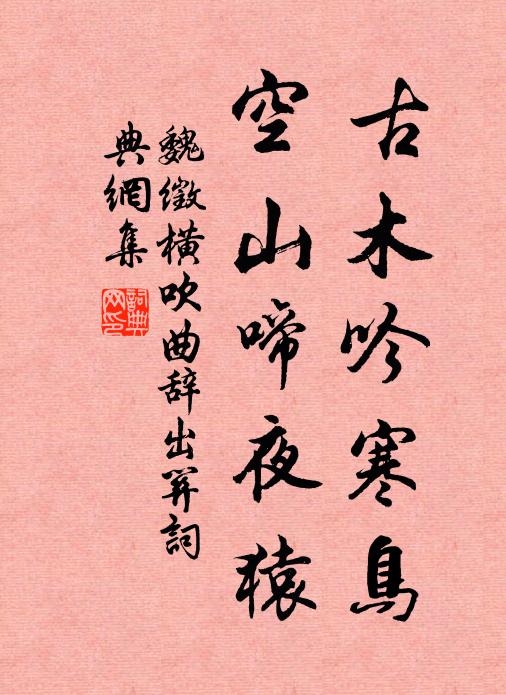 古木吟寒鳥
空山啼夜猿
魏徵橫吹曲辞出関詞
典網集
詞典網印